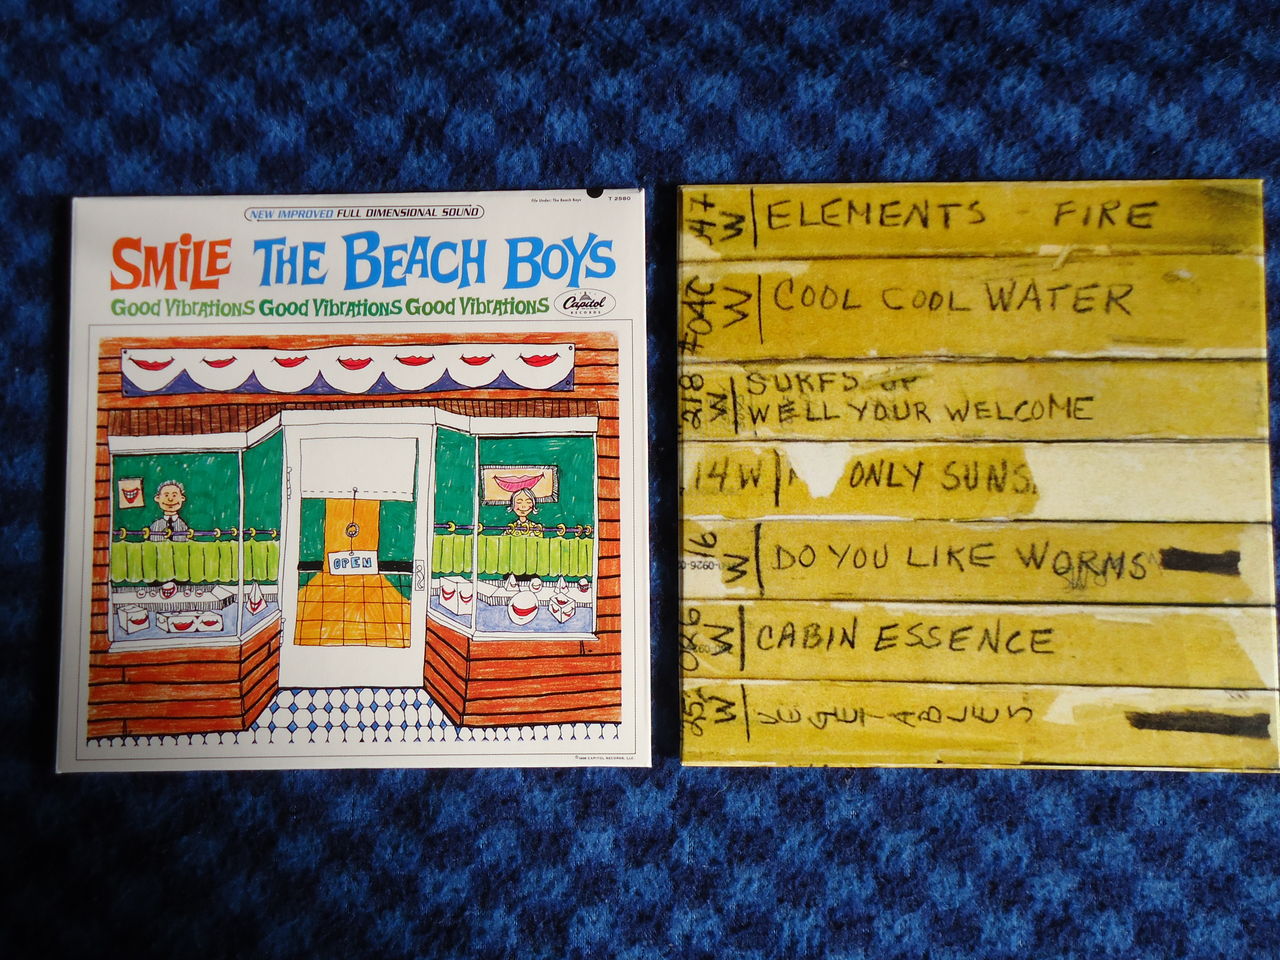 File Under: The Beach Boys
T 2580
NEW IMPROVED FULL DIMENSIONAL SOUND
SMiLE THE BEACH BOYS
Good Vibrations Good Vibrations Good Vibrations
Capitol
RECORDS
OPEN
W ELEMENTS - FIRE
W COOL COOL WATER
218 W SURFS UP
WELL YOUR WELCOME
14 W ONLY SUNS
16 W DO YOU LIKE WORMS
W CABIN ESSENCE
W VEGETABLES